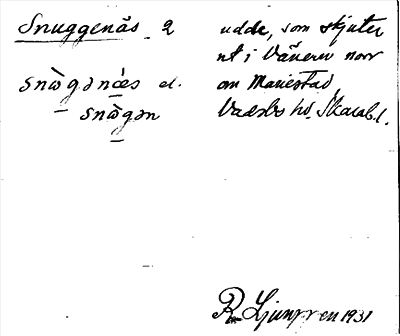 Snuggenäs 2
udde, som skjuter
ut i Vänern norr
om Mariestad,
Vadsbo hd. Skarab. l.
snɷ̀gənæ̀s el.
snɷ̀gən
R. Ljunggren 1931